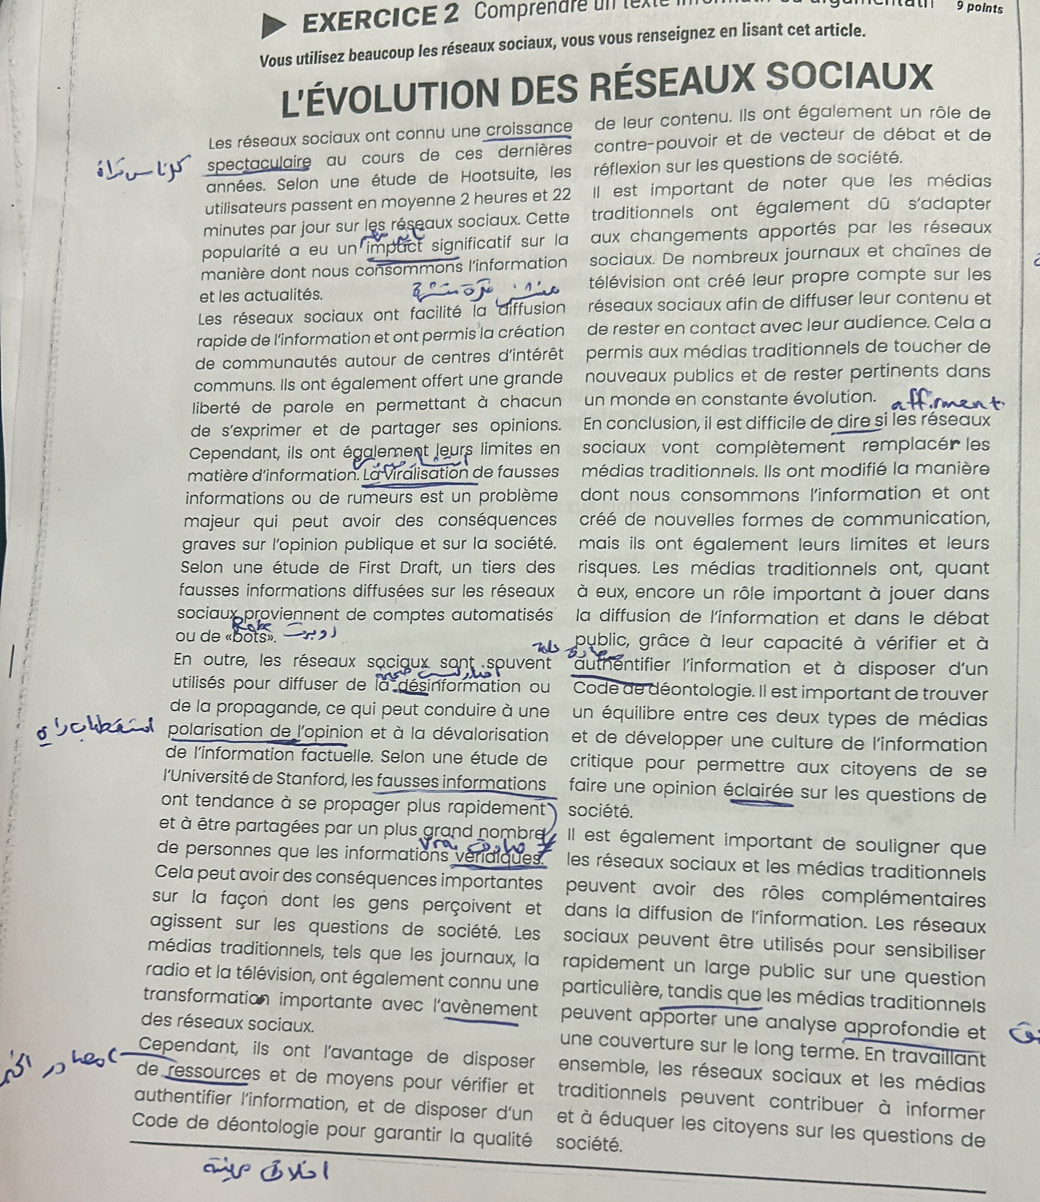 EXERCICE 2 Comprendre un texte
9 points
Vous utilisez beaucoup les réseaux sociaux, vous vous renseignez en lisant cet article.
L'ÉVOLUTION DES RÉSEAUX SOCIAUX
Les réseaux sociaux ont connu une croissance
spectaculaire au cours de ces dernières
années. Selon une étude de Hootsuite, les
utilisateurs passent en moyenne 2 heures et 22
minutes par jour sur les réseaux sociaux. Cette
popularité a eu un impact significatif sur la
manière dont nous consommons l'information
et les actualités.
Les réseaux sociaux ont facilité la diffusion
rapide de l'information et ont permis la création
de communautés autour de centres d'intérêt
communs. Ils ont également offert une grande
liberté de parole en permettant à chacun
de s'exprimer et de partager ses opinions.
Cependant, ils ont également leurs limites en
matière d'information. La viralisation de fausses
informations ou de rumeurs est un problème
majeur qui peut avoir des conséquences
graves sur l'opinion publique et sur la société.
Selon une étude de First Draft, un tiers des
fausses informations diffusées sur les réseaux
sociaux proviennent de comptes automatisés
ou de «bots».
روبوت
En outre, les réseaux sociaux sont souvent
utilisés pour diffuser de la désinformation ou
de la propagande, ce qui peut conduire à une
polarisation de l'opinion et à la dévalorisation
de l'information factuelle. Selon une étude de
l'Université de Stanford, les fausses informations
ont tendance à se propager plus rapidement
et à être partagées par un plus grand nombre
de personnes que les informations véridiques.
Cela peut avoir des conséquences importantes
sur la façon dont les gens perçoivent et
agissent sur les questions de société. Les
médias traditionnels, tels que les journaux, la
radio et la télévision, ont également connu une
transformation importante avec l'avènement
des réseaux sociaux.
Cependant, ils ont l'avantage de disposer
de ressources et de moyens pour vérifier et
authentifier l'information, et de disposer d'un
Code de déontologie pour garantir la qualité
اخلاق مهنية
de leur contenu. Ils ont également un rôle de
contre-pouvoir et de vecteur de débat et de
réflexion sur les questions de société.
Il est important de noter que les médias
traditionnels ont également dû s'adapter
aux changements apportés par les réseaux
sociaux. De nombreux journaux et chaînes de
télévision ont créé leur propre compte sur les
réseaux sociaux afin de diffuser leur contenu et
de rester en contact avec leur audience. Cela a
permis aux médias traditionnels de toucher de
nouveaux publics et de rester pertinents dans
un monde en constante évolution.
affirment
En conclusion, il est difficile de dire si les réseaux
sociaux vont complètement remplacer les
médias traditionnels. Ils ont modifié la manière
dont nous consommons l'information et ont
créé de nouvelles formes de communication,
mais ils ont également leurs limites et leurs
risques. Les médias traditionnels ont, quant
à eux, encore un rôle important à jouer dans
la diffusion de l'information et dans le débat
public, grâce à leur capacité à vérifier et à
authentifier l'information et à disposer d'un
Code de déontologie. Il est important de trouver
un équilibre entre ces deux types de médias
et de développer une culture de l'information
critique pour permettre aux citoyens de se
faire une opinion éclairée sur les questions de
société.
Il est également important de souligner que
les réseaux sociaux et les médias traditionnels
peuvent avoir des rôles complémentaires
dans la diffusion de l'information. Les réseaux
sociaux peuvent être utilisés pour sensibiliser
rapidement un large public sur une question
particulière, tandis que les médias traditionnels
peuvent apporter une analyse approfondie et
une couverture sur le long terme. En travaillant
ensemble, les réseaux sociaux et les médias
traditionnels peuvent contribuer à informer
et à éduquer les citoyens sur les questions de
société.